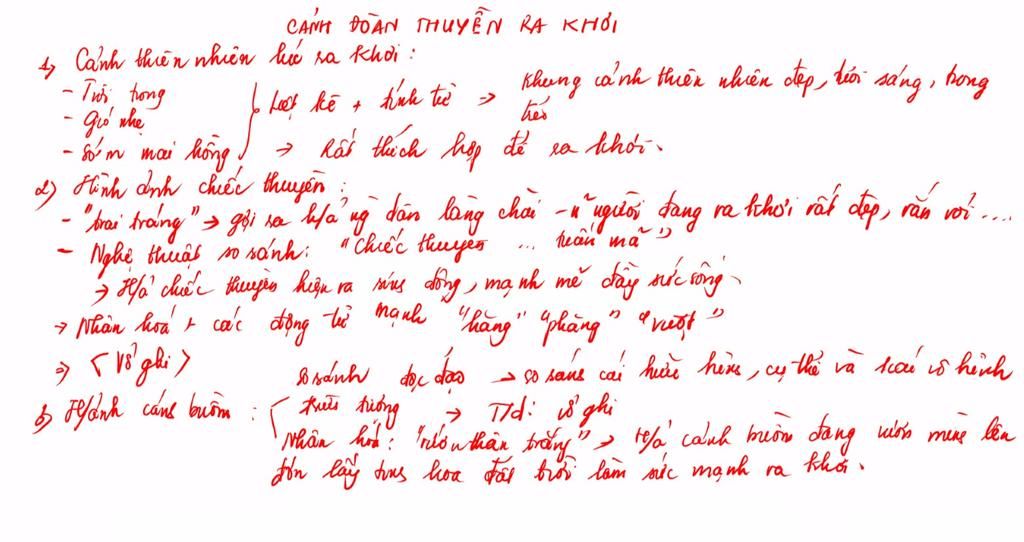 CẢNH ĐOÀN THUYỀN RA KHƠI
1) Cảnh thiên nhiên lúc ra khơi:
- Trời trong
- Gió nhẹ
- Sớm mai hồng
Liệt kê + tính từ → Khung cảnh thiên nhiên đẹp, tươi sáng, trong
trẻo
→ Rất thích hợp để ra khơi.
2) Hình ảnh chiếc thuyền:
- "trai tráng" → gợi ra h/ả ng dân làng chài - người đang ra khơi rất đẹp, rắn rỏi....
- Nghệ thuật so sánh: "Chiếc thuyền ... tuấn mã"
→ H/ả chiếc thuyền hiện ra sinh động, mạnh mẽ đầy sức sống
→ Nhân hoá + các động từ mạnh "hăng" "phăng" "vượt"
⇒ <Vở ghi>
3) H/ảnh cánh buồm:
so sánh độc đáo → so sánh cái hữu hình, cụ thể và cái vô hình
trừu tượng → T/d: vở ghi
Nhân hoá: "rướn thân trắng" → H/ả cánh buồm đang vươn mình lên
đón lấy tinh hoa đất trời làm sức mạnh ra khơi.